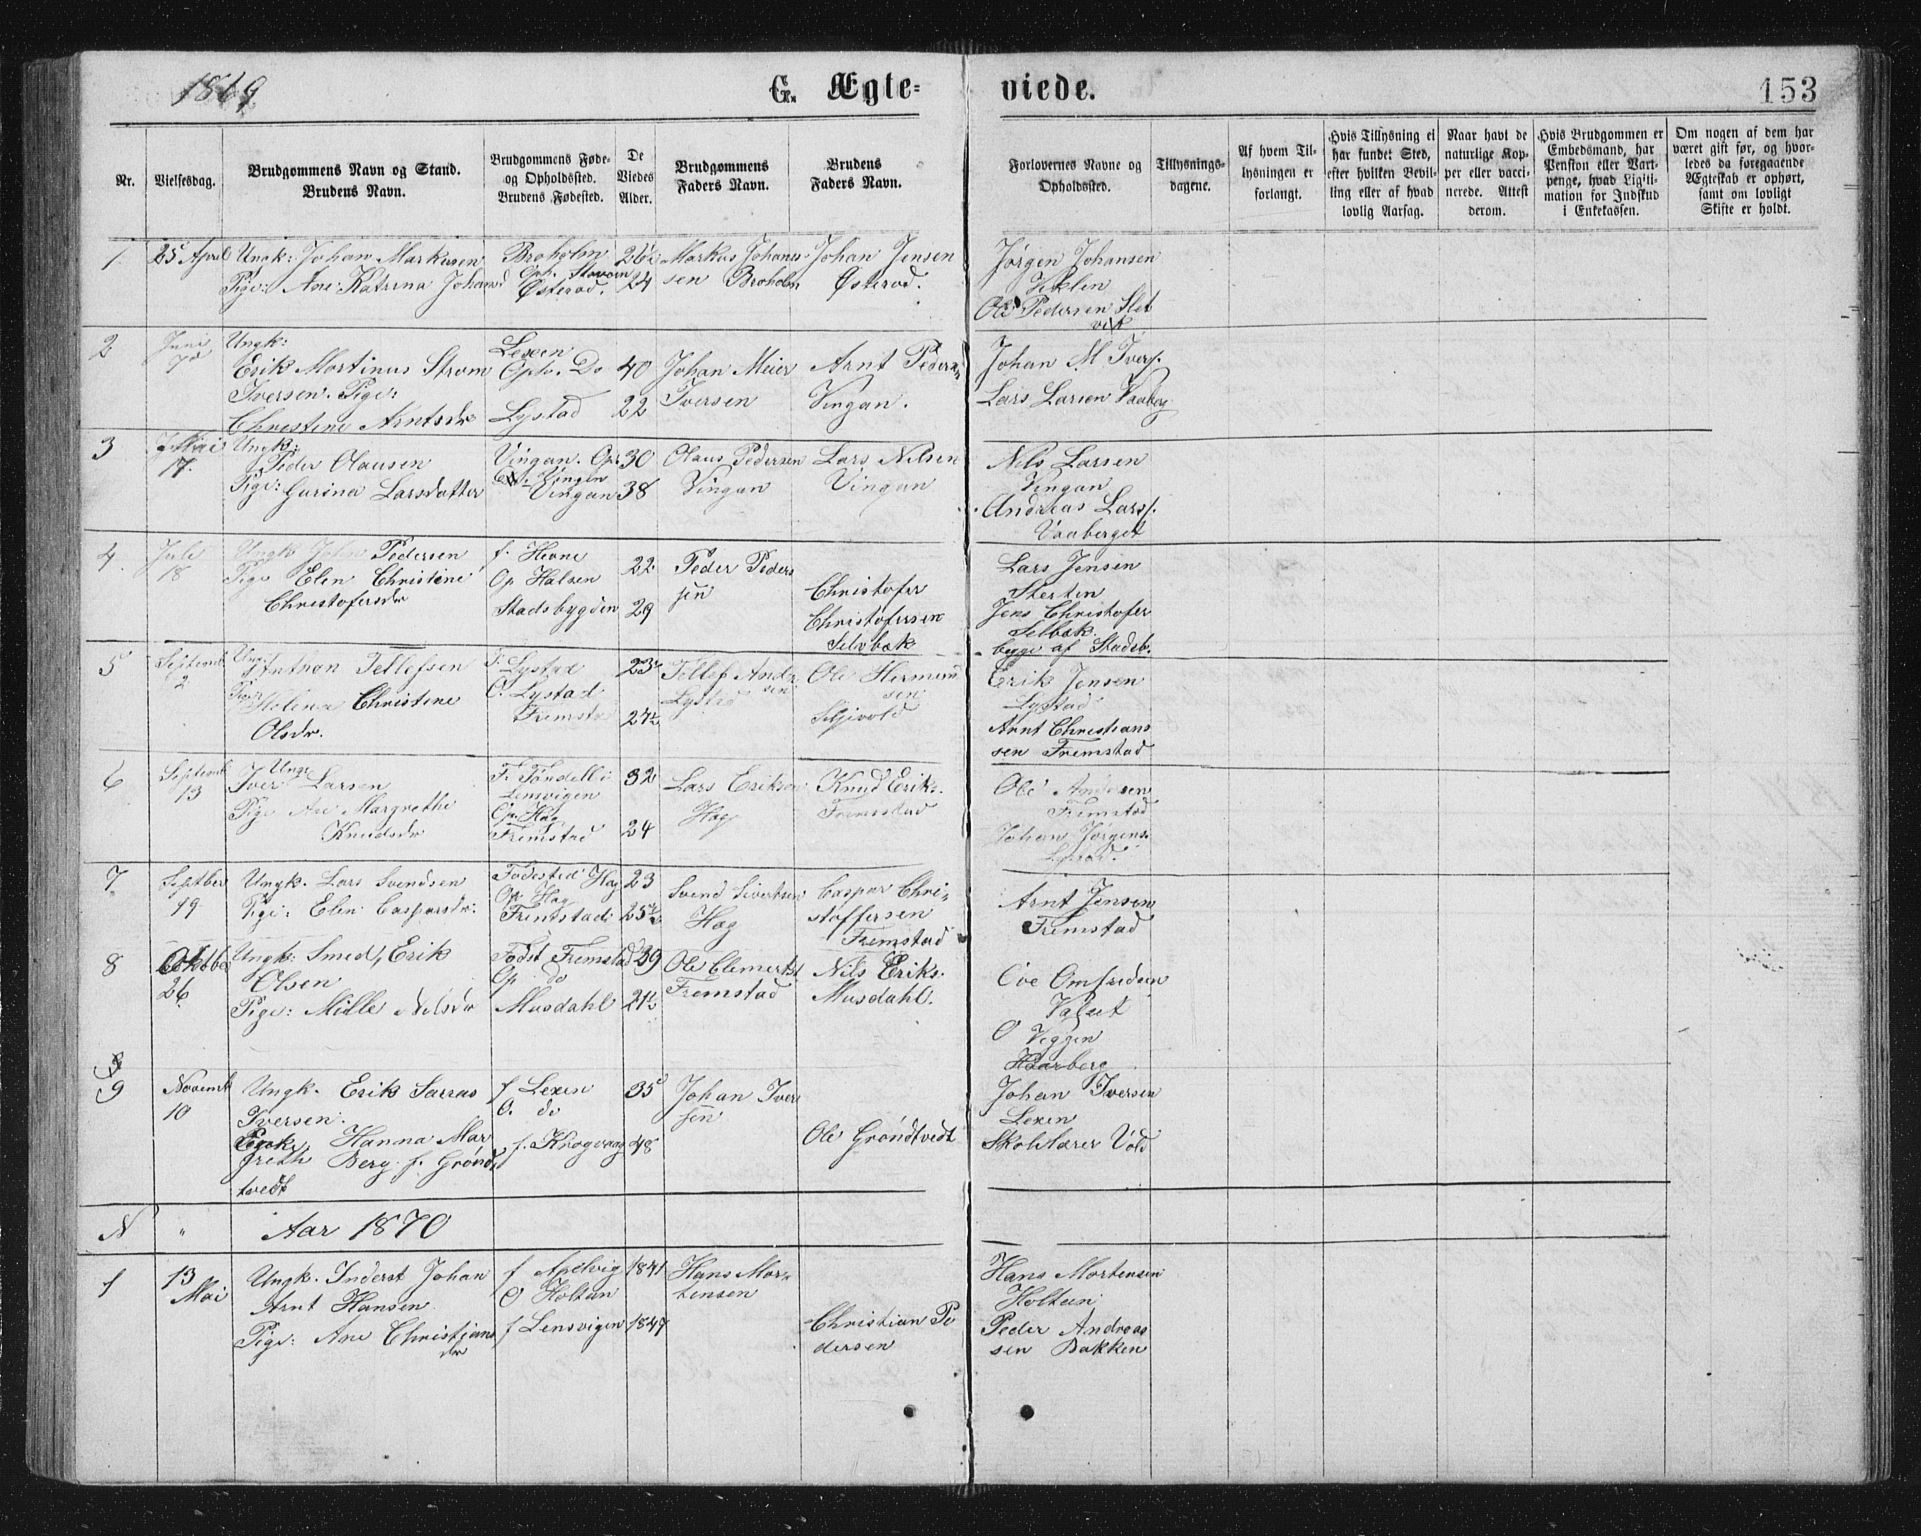 1869
G. Ægte-
viede.
153
Nr.
Vielsesdag.
Brudgommens Navn og Stand.
Brudens Navn.
Brudgommens Føde-
og Opholdssted.
Brudens Fødested.
De
Viedes
Alder.
Brudgommens
Faders Navn.
Brudens
Faders Navn.
Forlovernes Navne og
Opholdssted.
Tillysnings-
dagene.
Af hvem Til-
lysningen er
forlangt.
Hvis Tillysning ei
har fundet Sted,
efter hvilken Bevil-
ling eller af hvad
lovlig Aarsag.
Naar havt de
naturlige Kop-
per eller vacci-
nerede. Attest
derom.
Hvis Brudgommen er
Embedsmand, har
Pension eller Vart-
penge, hvad Ligiti-
mation for Indskud
i Enkekassen.
Om nogen af dem har
været gift før, og hvor-
ledes da foregaaende
Ægteskab er ophørt,
samt om lovligt
Skifte er holdt.
1
25 April
Ungk: Johan Markusen
Pige: Ane Katrina Johansd
Broholm
Oph.
Østerød.
24
Markus Johans-
sen Broholm
Johan Jensen
Østerød.
Jørgen Johansen
Ole Pedersen Slet
vik
2
Juni
Ungk:
Erik Martinus Strøm
Iversen. Pige:
Christine Arntsdr
Lexen
Oph. Do
Lystad
40
22
Johan Meier
Iversen
Arnt Peders-
Vingan.
Johan M Ivers.
Lars Larsen Vaaberg
3
17
Ungk:
Peder Olausen
Pige: Gurina Larsdatter
Vingan. Op.
Vingan
Vingan
30
38
Olaus Pedersen
Vingan
Lars Nilsen
Vingan
Nils Larsen
Vingan
Andreas Larss.
Vaaberget
4
Juli
18
Ungk John Pedersen
Pige Elen Christine
Christofersdr
f. Hevne
Op Halsen
Stadsbygden
22
29
Peder Peders
sen
Christofer
Christofersen
Selvbak
Lars Jensen
Sterten
Jens Christofer
Selbæk.
bygge af Stadsb.
5
Septemb
2
Ungk
Tellefsen
Pige:
Helena Christine
Olsdr.
F. Lystad
O. Lystad
Fremstad
23
27½
Tellef Andr
sen
Lystad
Ole Hermun
sen
Erik Jensen
Lystad
Arnt Christians
sen Fremstad
6
Septemb
13
Ungk
Iver Larsen
Pige Ane Margrethe
Knudsdr
Lensvigen
Op. Hag
Fremstad
32
24
Lars Eriksen
Hag
Knud Erik.
Fremstad
Ole Andersen
Fremstad
Johan Jørgens.
Lystad.
7
Septber
19
Ungk. Lars Svendsen
Pige: Elen Caspersdr.
Fødested Hag
Op. Hag
Fremstad
23
25½
Svend Sivertsen
Hag
Casper Chri-
stoffersen
Fremstad
Arnt Jensen
Fremstad
8
Oktober
26
Ungk: Smed, Erik
Olsen
Pige: Mille Nilsdr
Fødst Fremstad
Op. do
Musdahl
29
21½
Ole Clemetst
Fremstad
Nils Eriks.
Musdahl.
Ove Omfredsen
Valset
O Veggen
Haarberg
9
Novemb
10
Ungk. Erik Sarras
Iversen.
Hanna Mar
greth Berg f. Grønd
tvedt
f Lexen
O. do
f. Krogvaag
35
48
Johan Iver
sen
Ole Grøndtvedt
Johan Iversen
Lexen
Skolelærer Vold
N
"
Aar 1870
1
13
Mai
Ungk. Inderst Johan
Arnt Hansen
Pige: Ane Christians
dr
f Apelvig
O Holten
f Lensvigen
1841
1847
Hans Mor-
tensen
Christian Pe
dersen
Hans Mortensen
Holten
Peder Andreas
sen Bakken